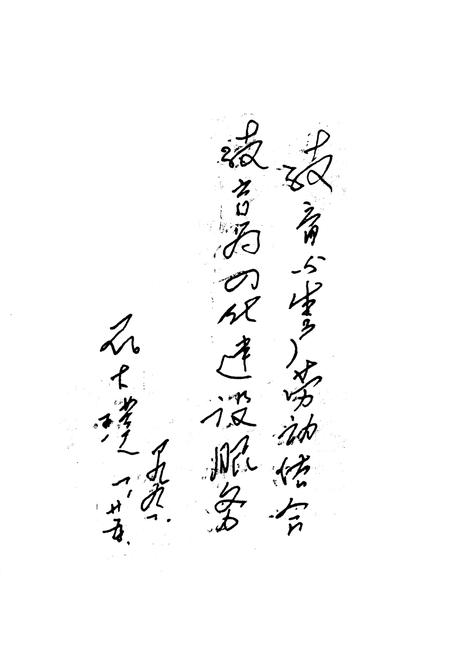 教育与生产劳动结合
教育为四化建设服务
一九九一.
大 一.廿五.